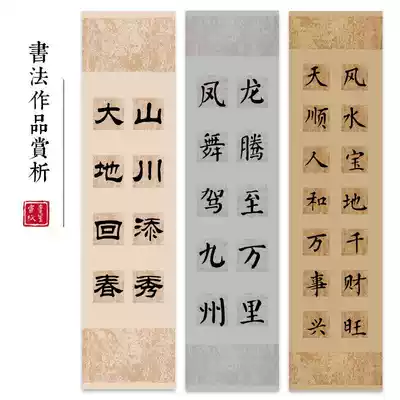 書法作品賞析
山川添秀
大地回春
龙腾至万里
凤舞驾九州
风水宝地千财旺
天顺人和万事兴